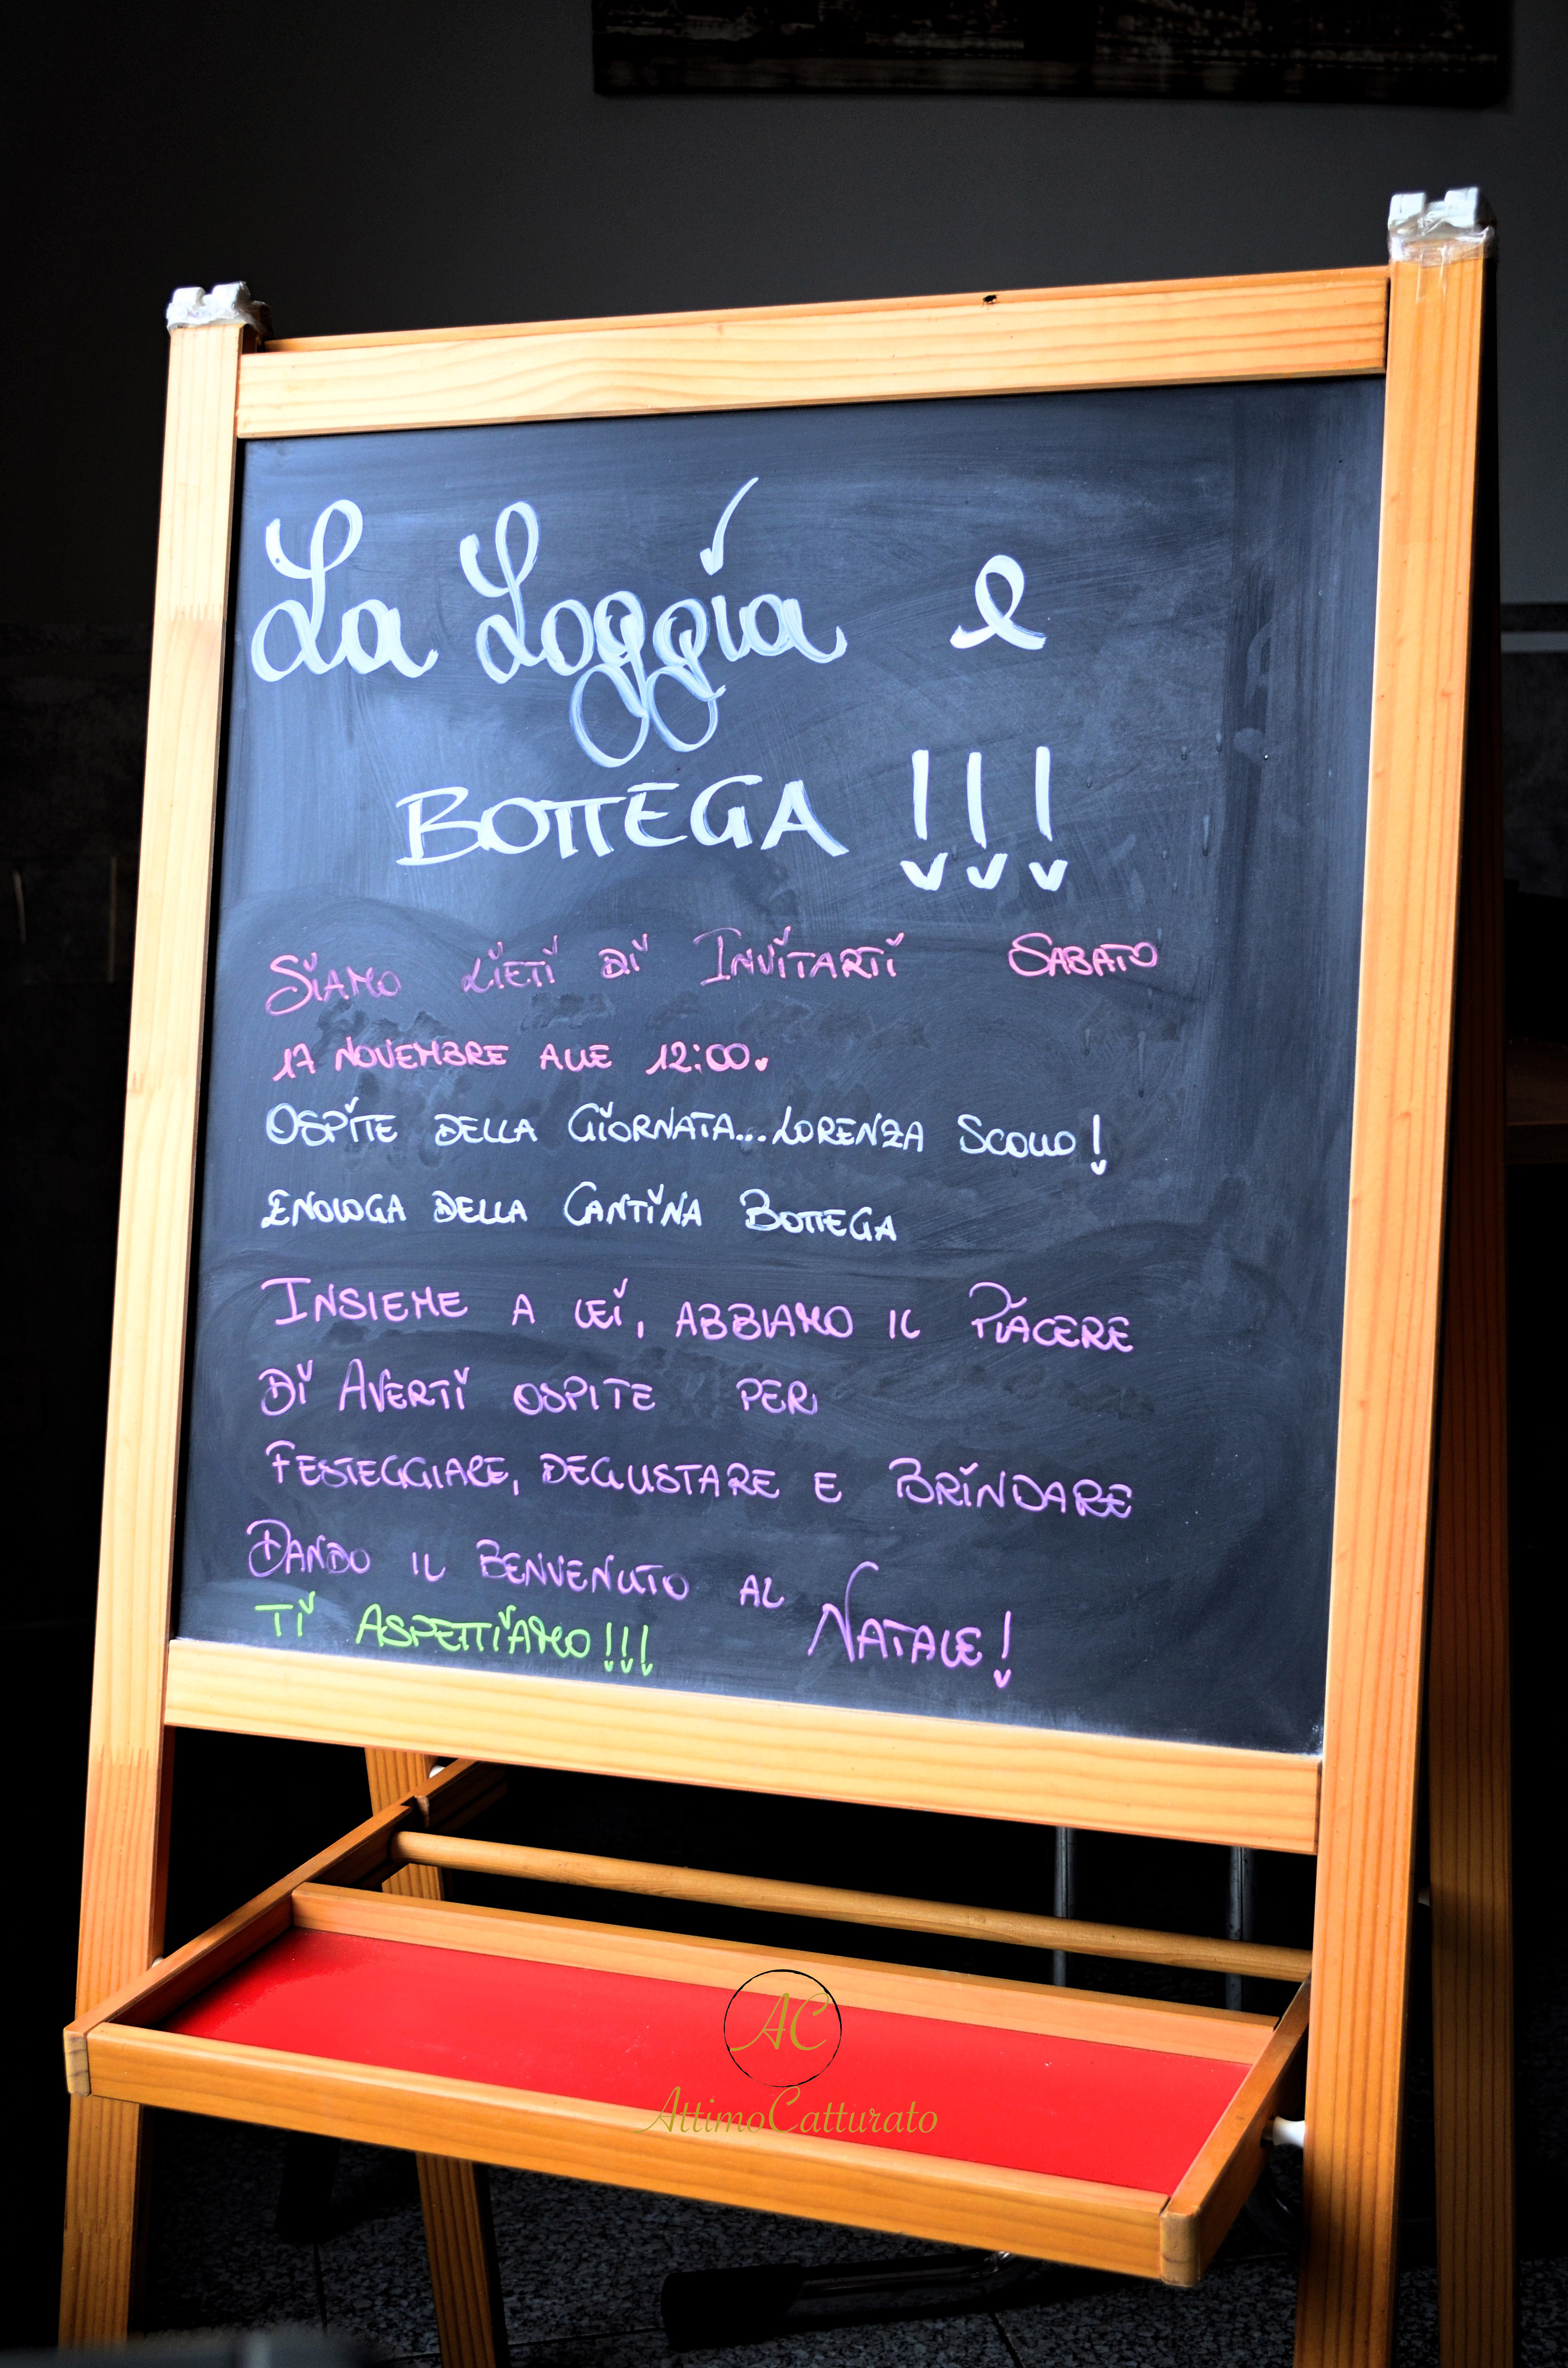 La Loggia e
BOTTEGA !!!
SiAMO LiETi Di INViTARTi SABATO
17 NOVEMBRE ALLE 12:00.
OSPiTE DELLA GiORNATA...LORENZA SCOLLO!
ENOLOGA DELLA CANTiNA BOTTEGA
INSIEME A LEi, ABBIAMO IL PiACERE
Di AVERTi OSPITE PER
FESTEGGIARE, DEGUSTARE E BRiNDARE
DANDO IL BENVENUTO AL NATALE!
Ti ASPETTiAMO!!!
AC
AttimoCatturato